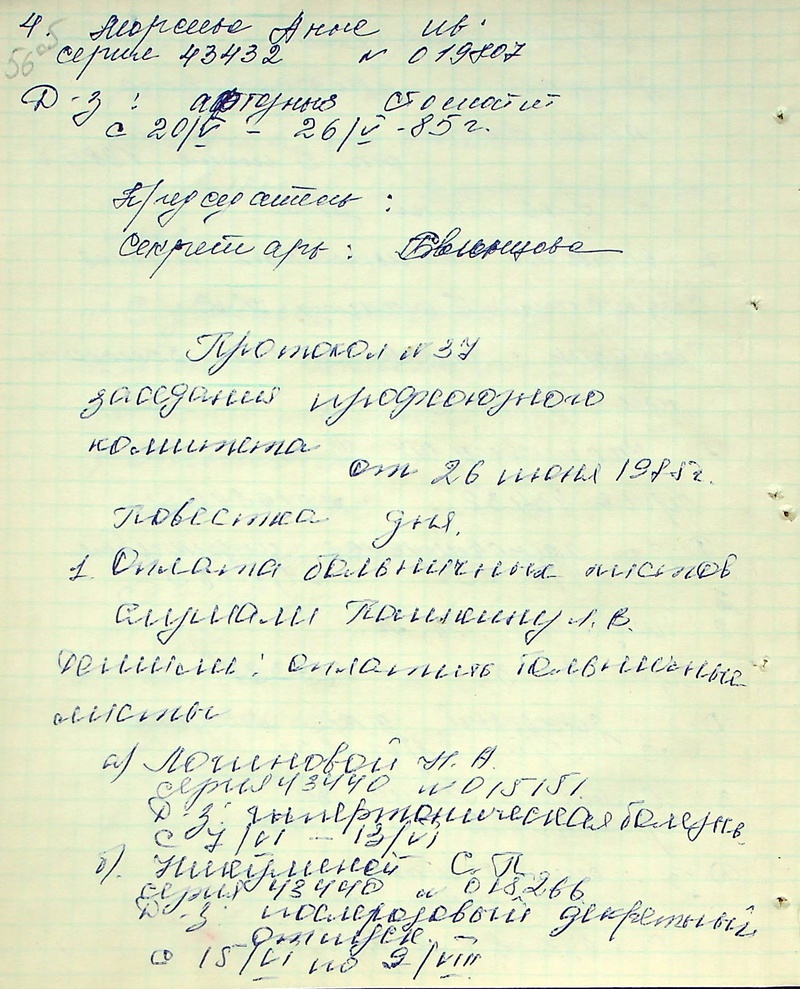 4. Анне Ив.
56об
серия 43432 N 019807
Д-з: афтозный стоматит
с 20/V – 26/V -85г.
Председатель:
Секретарь:
Протокол N 37
заседания профсоюзного
комитета
от 26 июня 1985г.
Повестка дня.
1. Оплата больничных листов
слушали Л. В.
Решили: оплатить больничные
листы
а) Логиновой Н. А.
серия 43440 N 015151
Д-з: гипертоническая болезнь
с 7/VI – 13/VI
б). Никулиной С. П.
серия 43440 N 018266
Д-з: послеродовый декретный
отпуск.
с 15/VI по 9/VIII